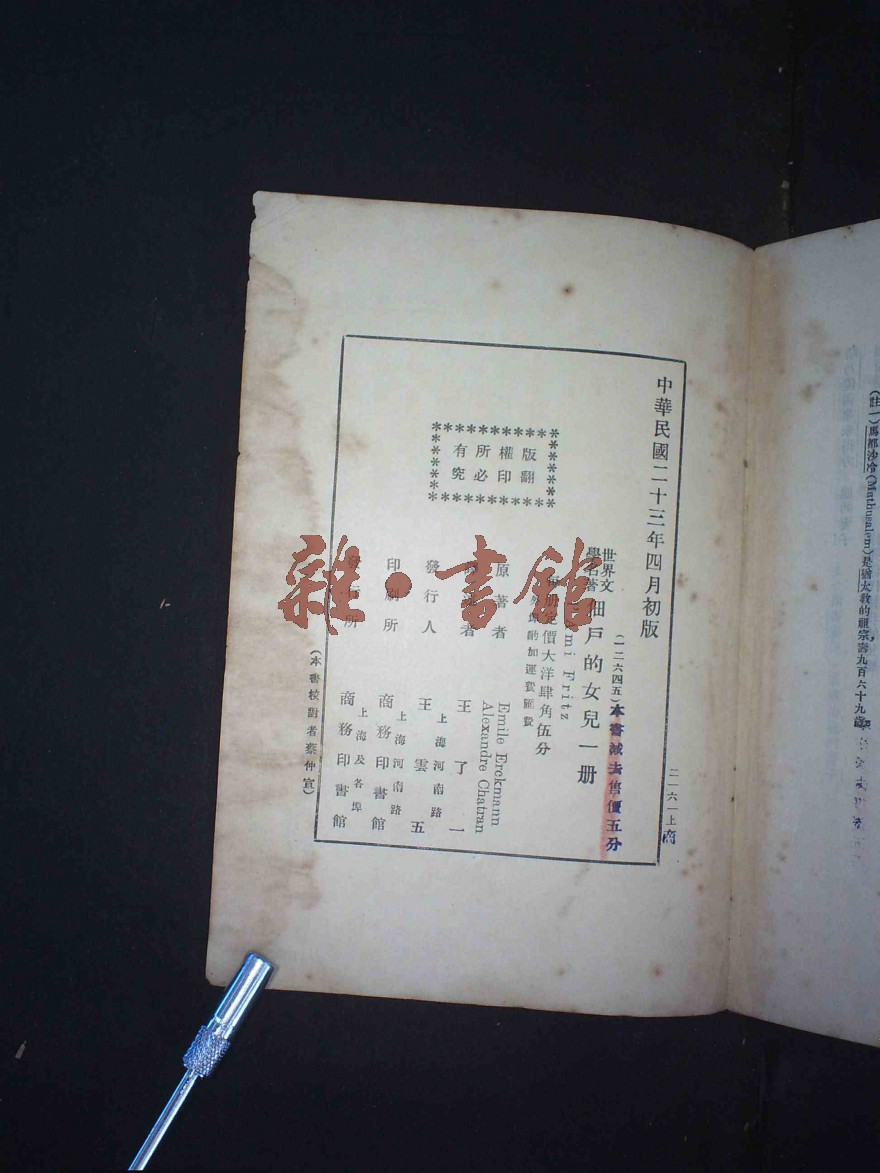 (註一)馬都沙令(Mathusalem)是猶太教的祖宗,壽九百六十九歲。
二一六一上商
中華民國二十三年四月初版
(一二六四五)本書減去售價五分
世界文學名著
佃戶的女兒一册
Fritz
每册定價大洋肆角伍分
外埠酌加運費匯費
版權所有
翻印必究
原著者
Emile Erckmann
Alexandre Chatran
者
王了一
發行人
上海河南路
王雲五
印刷所
上海河南路
商務印書館
發行所
上海及各埠
商務印書館
(本書校對者蔡仲宣)
雜·書館